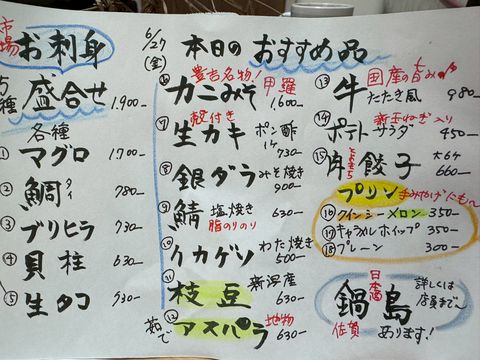 市場 お刺身
5種 盛合せ 1,900-
各種
① マグロ 1,700-
② 鯛 タイ 780-
③ ブリヒラ 730-
④ 貝柱 630-
⑤ 生タコ 730-
6/27 (金) 本日のおすすめ品
豊吉名物!
⑥ カニみそ 甲羅 1,600-
殻付き
⑦ 生カキ ポン酢 1ケ 730-
⑧ 銀ダラ みそ焼き 900-
⑨ 鯖 塩焼き 630-
脂のりのり
⑩ クカゲソ わた焼き 500-
⑪ 枝豆 新潟産 630-
⑫ 茹で アスパラ 地物 630-
⑬ 牛 国産の旨み
たたき風 980-
⑭ 新玉ねぎ入り
ポテトサラダ 450-
⑮ 肉餃子 大6ケ 660-
プリン
⑯ クインシーメロン 350-
⑰ キャラメルホイップ 350-
⑱ プレーン 300-
日本酒 鍋島 佐賀
詳しくは
店員まで〜
あります!